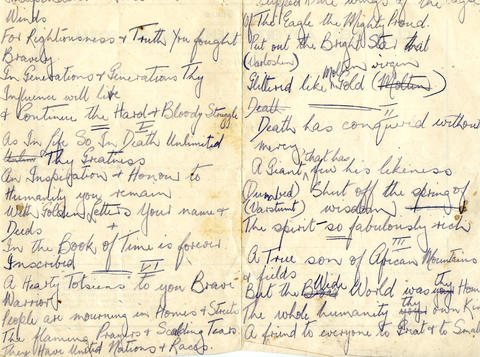 Winds
For Righteousness & Truth you fought
Bravely.
In Generations & Generations Thy
Influence will live
& Continue the Hard & Bloody Struggle
V
As In life So In Death Unlimited
Thy Greatness
An Inspiration & Honour to
Humanity you remain
With Golden letters Your name &
Deeds
In the Book of Time is forever
Inscribed
VI
A Hearty "Totsiens" to you Brave
Warrior
People are mourning in Homes & Streets
The flaming Prayers & Scalding Tears
They Have United Nations & Races.
wings of the Eagle
Of The Eagle the Might Proud.
Put out the Bright Star that
Glittered like Molten Gold (Molten)
virgin
Death
II
Death has conquered without
mercy
A Giant that has few his likeness
Shut off the spring of
wisdom
The spirit so fabulously rich
III
A True son of African Mountains
& fields
But the Wide World was thy Home
The whole humanity thy own Kin
A friend to everyone to Great & to Small